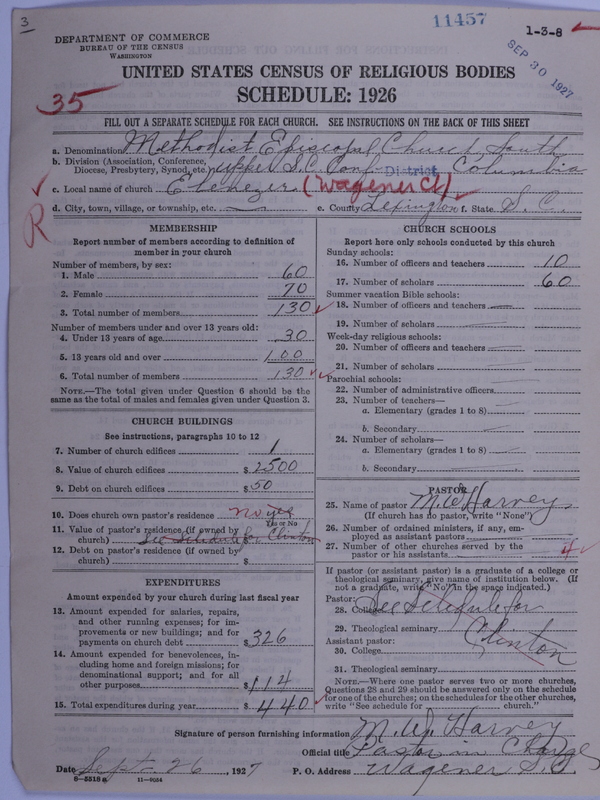 3
11457
1-3-8
SEP 30 1927
DEPARTMENT OF COMMERCE
BUREAU OF THE CENSUS
WASHINGTON
UNITED STATES CENSUS OF RELIGIOUS BODIES
SCHEDULE: 1926
35
FILL OUT A SEPARATE SCHEDULE FOR EACH CHURCH. SEE INSTRUCTIONS ON THE BACK OF THIS SHEET
a. Denomination Methodist Episcopal Church, South
b. Division (Association, Conference, Diocese, Presbytery, Synod, etc.) Upper S.C. Conf. District Columbia
c. Local name of church Ebenezer (Wagener Ct)
R
d. City, town, village, or township, etc. e. County Lexington f. State S.C.
MEMBERSHIP
Report number of members according to definition of
member in your church
Number of members, by sex:
1. Male 60
2. Female 70
3. Total number of members 130
Number of members under and over 13 years old:
4. Under 13 years of age 30
5. 13 years old and over 100
6. Total number of members 130
NOTE.—The total given under Question 6 should be the
same as the total of males and females given under Question 3.
CHURCH BUILDINGS
See instructions, paragraphs 10 to 12
7. Number of church edifices 1
8. Value of church edifices $ 2500
9. Debt on church edifices $ 50
10. Does church own pastor's residence no yes
Yes or No
11. Value of pastor's residence (if owned by
church) See Schedule $ for Clinton
12. Debt on pastor's residence (if owned by
church) $
EXPENDITURES
Amount expended by your church during last fiscal year
13. Amount expended for salaries, repairs,
and other running expenses; for im-
provements or new buildings; and for
payments on church debt $ 326
14. Amount expended for benevolences, in-
cluding home and foreign missions; for
denominational support; and for all
other purposes $ 114
15. Total expenditures during year $ 440
CHURCH SCHOOLS
Report here only schools conducted by this church
Sunday schools:
16. Number of officers and teachers 10
17. Number of scholars 60
Summer vacation Bible schools:
18. Number of officers and teachers
19. Number of scholars
Week-day religious schools:
20. Number of officers and teachers
21. Number of scholars
Parochial schools:
22. Number of administrative officers
23. Number of teachers—
a. Elementary (grades 1 to 8)
b. Secondary
24. Number of scholars—
a. Elementary (grades 1 to 8)
b. Secondary
PASTOR
25. Name of pastor M. W. Harvey
(If church has no pastor, write "None")
26. Number of ordained ministers, if any, em-
ployed as assistant pastors
27. Number of other churches served by the
pastor or his assistants 4
If pastor (or assistant pastor) is a graduate of a college or
theological seminary, give name of institution below. (If
not a graduate, write "No" in the space indicated.)
Pastor:
28. College See Schedule for
29. Theological seminary Clinton
Assistant pastor:
30. College
31. Theological seminary
NOTE.—Where one pastor serves two or more churches,
Questions 28 and 29 should be answered only on the schedule
for one of the churches; on the schedules for the other churches,
write "See schedule for church."
Signature of person furnishing information M. W. Harvey
Official title Pastor in Charge
Date Sept. 26, 1927 P. O. Address Wagener S.C.
8-5518a 11-9054